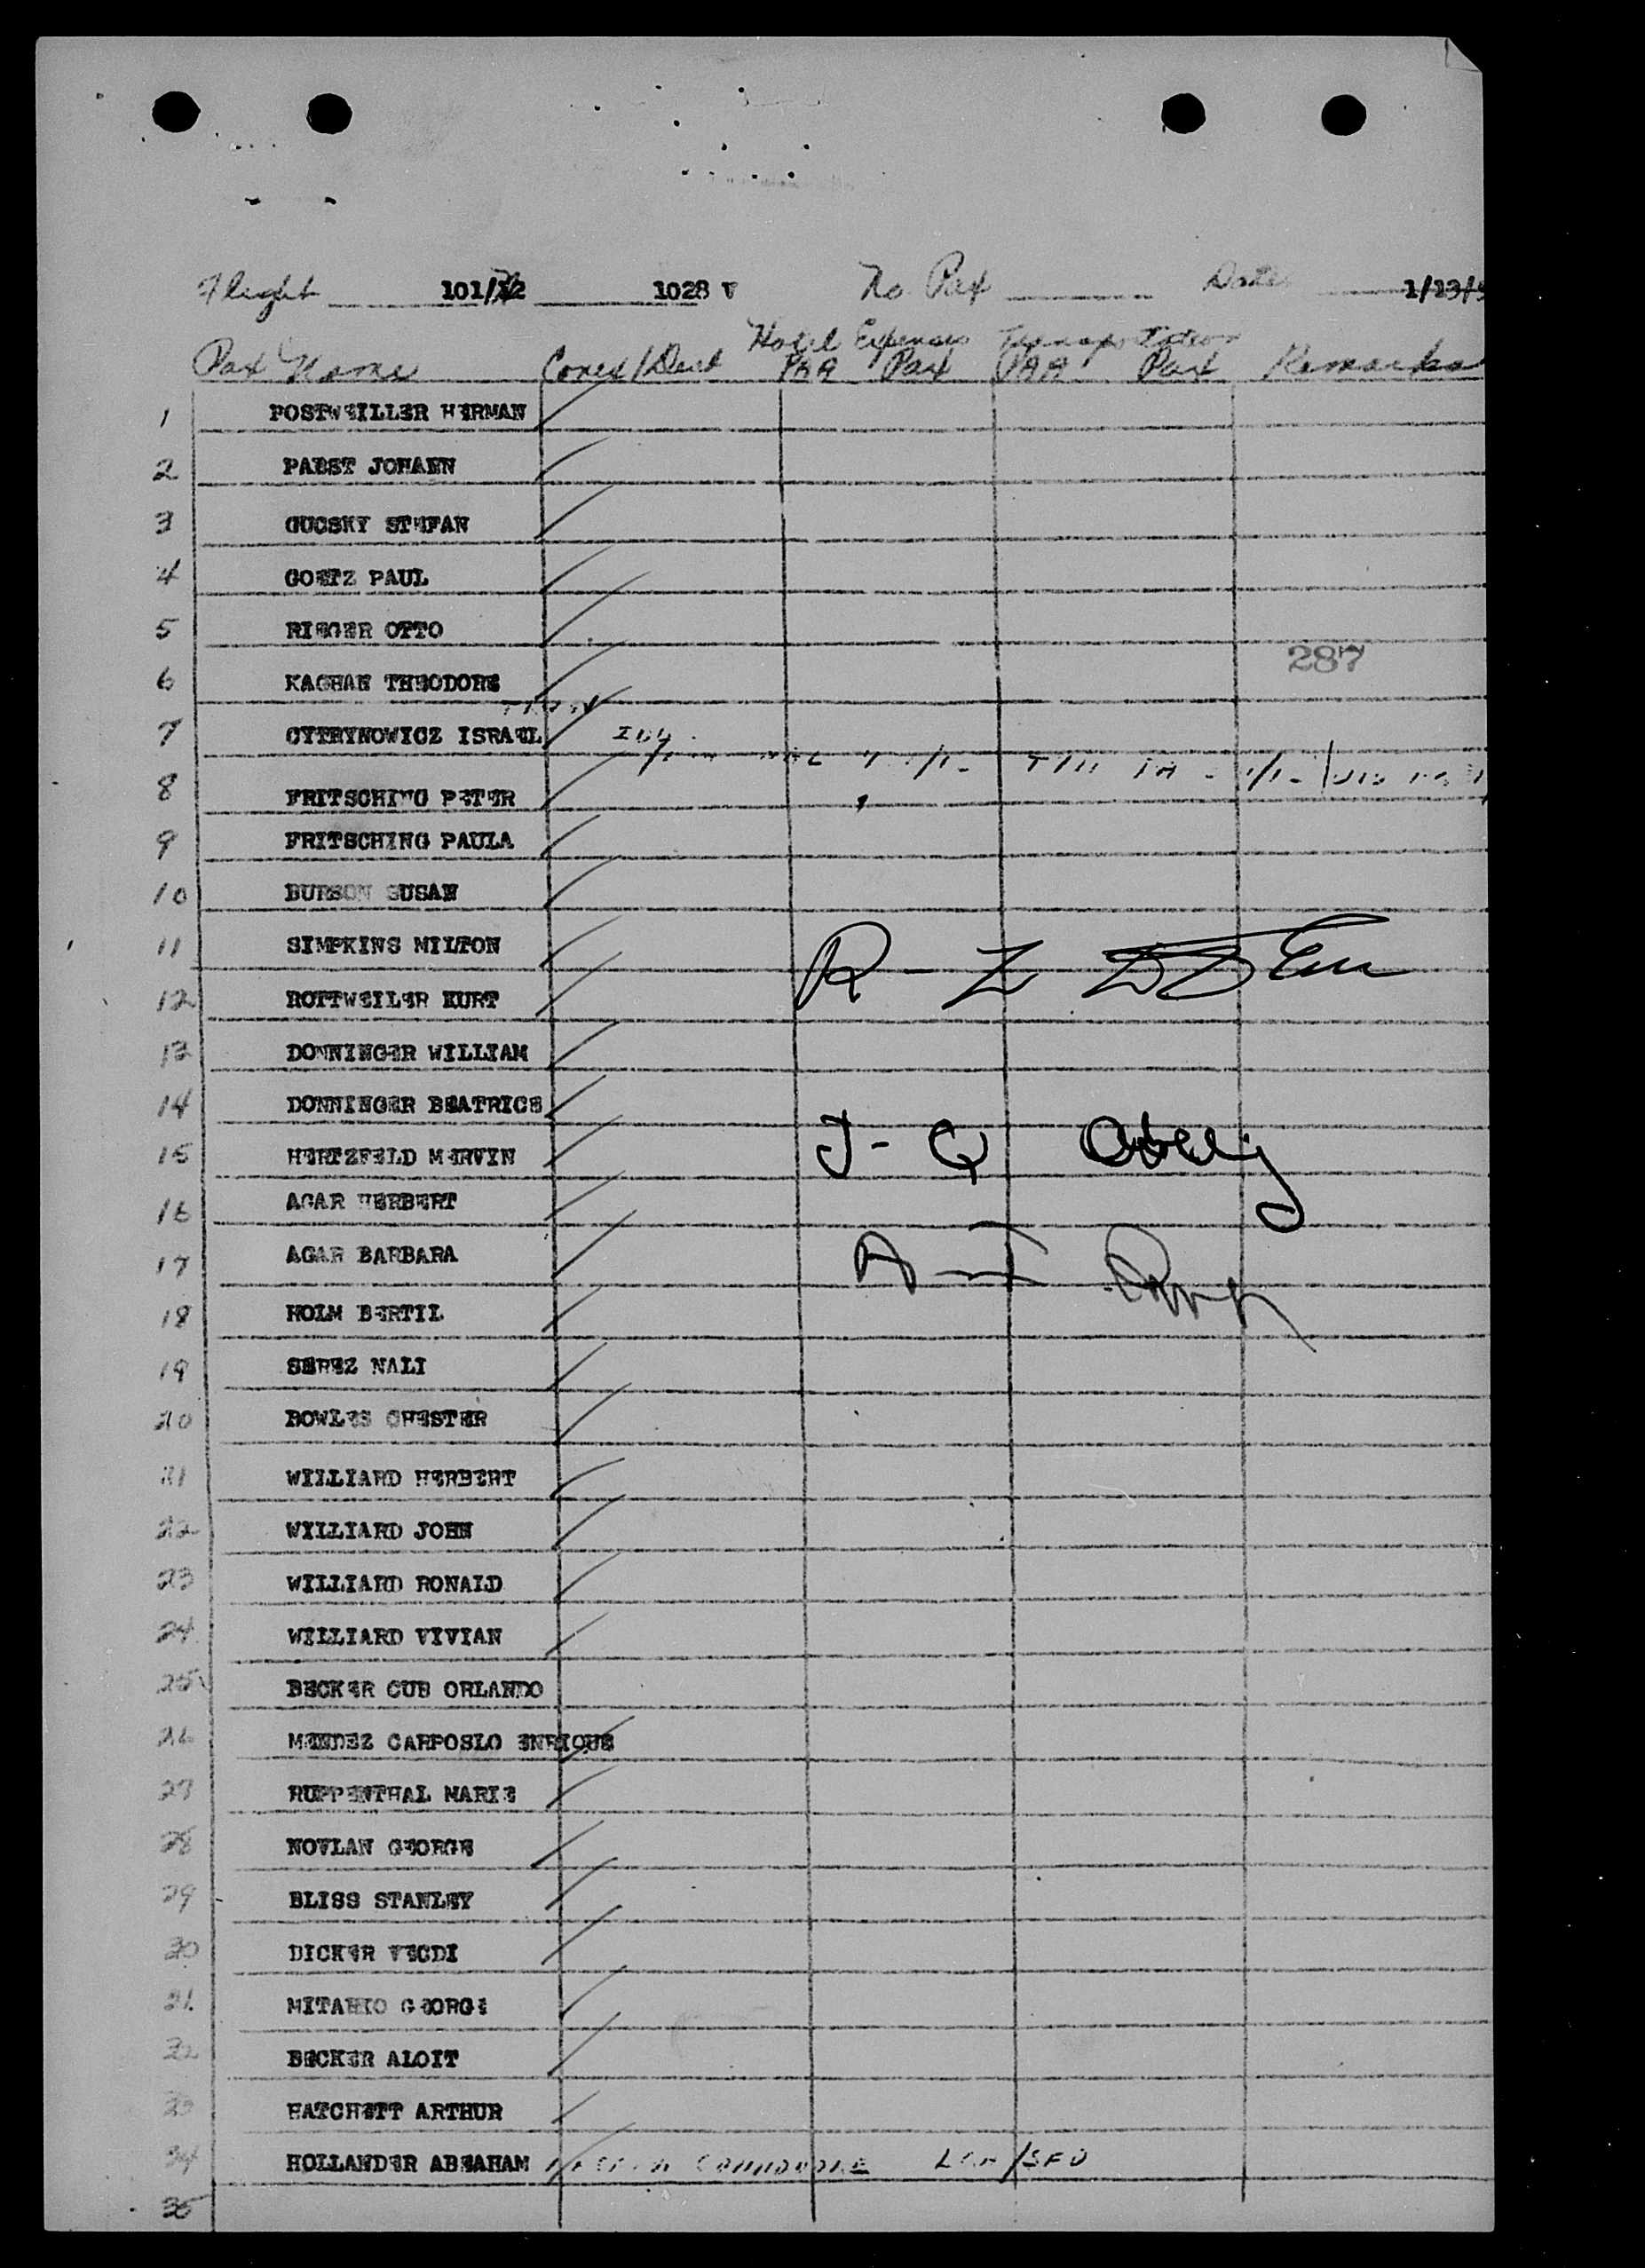 Flight 101/12 1028 V No Pax Date 1/13/5
Hotel Expenses Transportation
Pax Name Conex/Dest PAA Pax PAA Pax Remarks
1 POSTWEILLER HERMAN
2 PABST JOHANN
3 GUCSKY STEFAN
4 GOETZ PAUL
5 RIEGER OTTO
287
6 KAGHAN THEODORE
7 CYTRYNOWICZ ISRAEL
8 FRITSCHING PETER
9 FRITSCHING PAULA
10 BURSON SUSAN
11 SIMPKINS MILTON
12 ROTTWEILER KURT
13 DONNINGER WILLIAM
14 DONNINGER BEATRICE
15 HERTZFELD MERVIN
16 AGAR HERBERT
17 AGAR BARBARA
18 HOLM BERTIL
19 SEREZ NALI
20 BOWLES CHESTER
21 WILLIARD HERBERT
22 WILLIARD JOHN
23 WILLIARD RONALD
24 WILLIARD VIVIAN
25 BECKER CUB ORLANDO
26 MENDEZ CARPOSLO ENRIQUE
27 RUPPENTHAL MARIE
28 NOVLAN GEORGE
29 BLISS STANLEY
30 DICKER VECDI
31 GEORGE
32 BECKER ALOIT
33 HATCHETT ARTHUR
34 HOLLANDER ABEAHAM COMMODORE /SFO
35